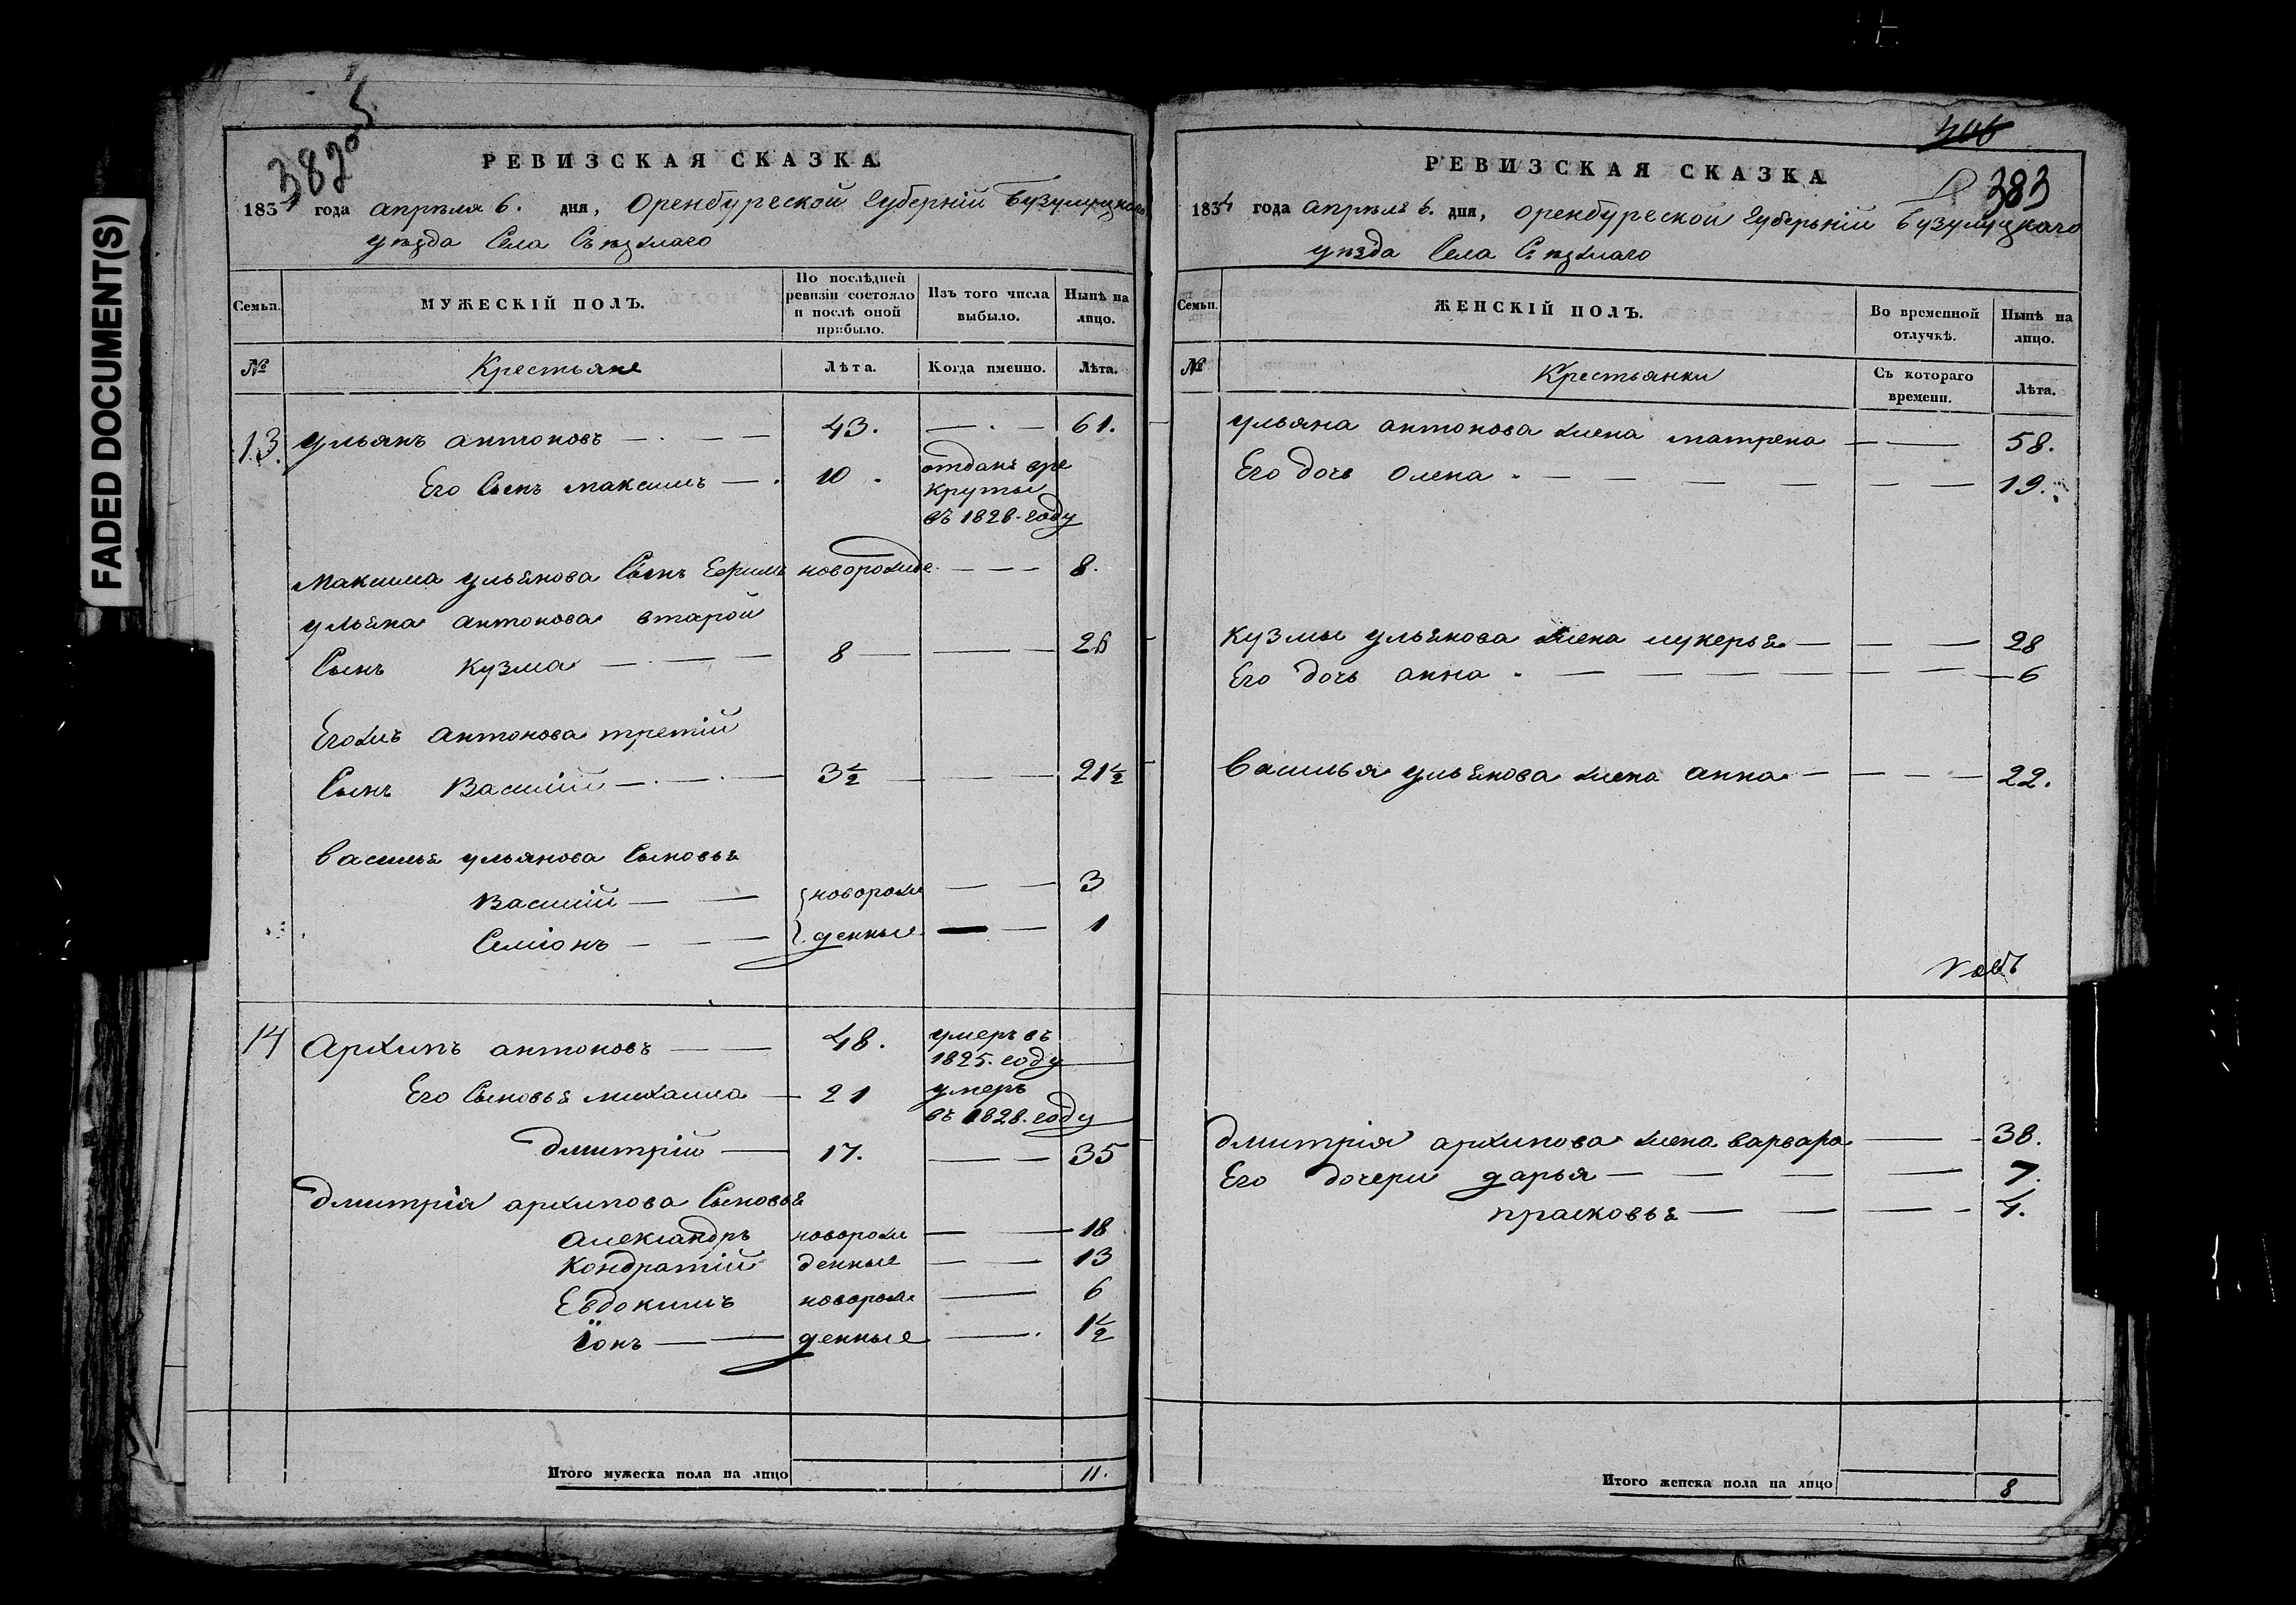 FADED DOCUMENT(S)
382
РЕВИЗСКАЯ СКАЗКА
183 года апрѣля 6. дня, Оренбургской Губерніи Бузулуцкаго
уѣзда Села Съѣзжаго
Семьи.
МУЖЕСКІЙ ПОЛЪ.
По послѣдней ревизіи состояло и послѣ оной прибыло.
Изъ того числа выбыло.
Нынѣ на лицо.
№
Крестьяне
Лѣта.
Когда именно.
Лѣта.
13. ульянъ антоновъ — 43. — 61.
Его Сынъ максимъ — 10. отданъ вре
круты
въ 1828. году
Максима ульянова Сынъ Ефимъ новорожде — 8.
ульяна антонова второй
Сынъ Кузма — 8 — 26
Егожъ антонова третій
Сынъ Василій — 3½ — 21½
Василья ульянова Сыновья
Василій — новорож — 3
Семіонъ — денные — 1
14 Архипъ антоновъ — 48. умеръ въ
1825. году
Его Сыновья михаила — 21 умеръ
въ 1828. году
дмитрій — 17. — 35
дмитрія архипова Сыновья
Александръ новорож — 18
Кондратій денные — 13
Евдокимъ новорож — 6
Іонъ — денные — 1½
Итого мужеска пола на лицо 11.
383
РЕВИЗСКАЯ СКАЗКА
1834 года апрѣля 6. дня, Оренбургской Губерніи Бузулуцкаго
уѣзда Села Съѣзжаго
Семьи.
ЖЕНСКІЙ ПОЛЪ.
Во временной отлучкѣ.
Нынѣ на лицо.
№
Крестьянки
Съ котораго времени.
Лѣта.
ульяна антонова жена матрена — 58.
Его дочь Олена — 19.
Кузмы ульянова жена лукерья — 28
Его дочь анна — 6
Василья ульянова жена анна — 22.
дмитрія архипова жена варвара — 38.
Его дочери дарья — 7.
прасковья — 4.
Итого женска пола на лицо 8